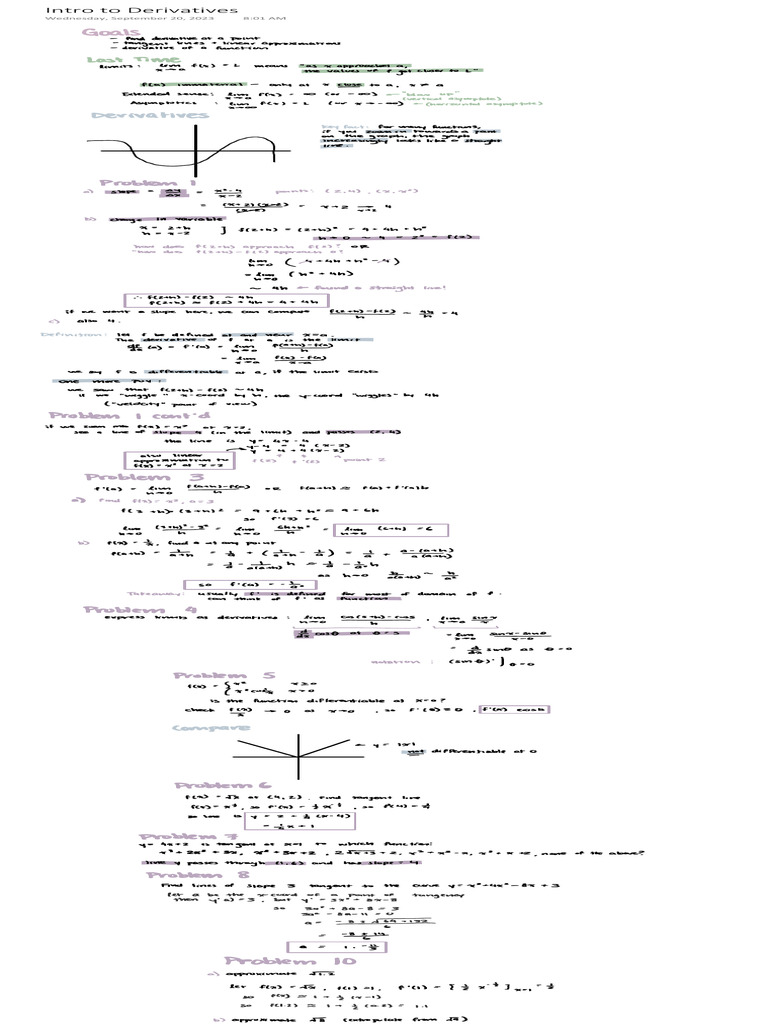 Intro to Derivatives
Wednesday, September 20, 2023 8:01 AM
Goals
- find derivative at a point
- tangent lines + linear approximations
- derivative of a function
Last Time
limits: lim x→a f(x) = L means "as x approaches a,
the values of f get closer to L"
f(a) immaterial - only at x close to a, x ≠ a
Extended sense: lim x→a f(x) = ∞ (or -∞) ← "blow up"
(vertical asymptote)
Asymptotics: lim x→∞ f(x) = L (or x → -∞) ← (horizontal asymptote)
Derivatives
Key fact: for many functions,
if you zoom in towards a point
on the graph, the graph
increasingly looks like a straight
line.
Problem 1
a) slope = Δy/Δx = x²-4/x-2 points: (2,4), (x,x²)
= (x+2)(x-2)/(x-2) = x+2 → 4
b) change in variable
x = 2+h
h = x-2 ] f(2+h) = (2+h)² = 4+4h+h²
how does f(2+h) approach f(2)? OR
"how does f(2+h)-f(2) approach 0?
lim h→0 (4+4h+h²-4)
= lim h→0 (h²+4h)
~ 4h ← found a straight line!
∴ f(2+h)-f(2) ~ 4h
f(2+h) ≈ f(2)+4h = 4+4h
if we want a slope here, we can compute f(2+h)-f(2)/h ~ 4h/h = 4
c) also 4.
Definition: let f be defined at and near x=a.
The derivative of f at a is the limit
df/dx (a) = f'(a) = lim h→0 f(a+h)-f(a)/h
= lim x→a f(x)-f(a)/x-a
we say f is differentiable at a, if the limit exists
one more POV:
we saw that f(2+h)-f(2) ~ 4h
if we "wiggle" x-coord by h, the y-coord "wiggles" by 4h
("velocity" point of view)
Problem 1 cont'd
if we zoom into f(x)=x² at x=2,
see a line of slope 4 (in the limit) and passes (2,4)
the line is y = 4x-4
y-4 = 4(x-2)
y = 4+4(x-2)
also linear
approximation to
f(x)=x² at x=2
point 2
Problem 3
f'(a) = lim h→0 f(a+h)-f(a)/h OR f(a+h) ≈ f(a)+f'(a)h
a) find f(x)=x², a=3
f(3+h) = (3+h)² = 9+6h+h² ≈ 9+6h
so f'(3) = 6
lim h→0 (3+h)²-3²/h = lim h→0 6h+h²/h = lim h→0 (6+h) = 6
b) f(x) = 1/x, find a at any point
f(a+h) = 1/a+h = 1/a + (1/a+h - 1/a) = 1/a + a-(a+h)/a(a+h)
= 1/a - 1/a(a+h) h ≈ 1/a - 1/a² h
as h→0 h/a(a+h) ~ h/a²
so f'(a) = -1/a²
Takeaway: usually f' is defined for most of domain of f.
can think of f' as function!
Problem 4
express limits as derivatives: lim h→0 cos(5+h)-cos5/h, lim x→0 sinx/x
d/dθ cosθ at θ=5
= lim x→0 sinx-sin0/x-0
= d/dθ sinθ at θ=0
notation: (sinθ)' ] θ=0
Problem 5
is the function differentiable at x=0?
check f(x)/x → 0 at x→0, so f'(0)=0, f'(0) exists
Compare
← y = |x|
not differentiable at 0
Problem 6
f(x)=√x at (4,2). find tangent line
f(x) = x^½, so f'(x) = ½x^-½, so f'(4) = ¼
so line is y = 2 + ¼(x-4)
= ¼x+1
Problem 7
y = 4x+2 is tangent at x=1 to which function:
x³+2x²+3x, x²+3x+2, 2√x+3+2, x³+x²-x, x³+x+2, none of the above?
line y passes through (1,6) and has slope = 4
Problem 8
find lines of slope 3 tangent to the curve y = x³+4x²-8x+3
let a be the x-coord of a point of tangency
then y'(a) = 3, but y' = 3x²+8x-8
so 3a²+8a-8 = 3
3a²+8a-11 = 0
a = -8±√64+132/6
= -8±14/6
a = 1, -11/3
Problem 10
a) approximate √1.2
let f(x)=√x, f(1)=1, f'(1) = [½x^-½] x=1 = ½
so f(x) ≈ 1+½(x-1)
so f(1.2) ≈ 1+½(0.2) = 1.1